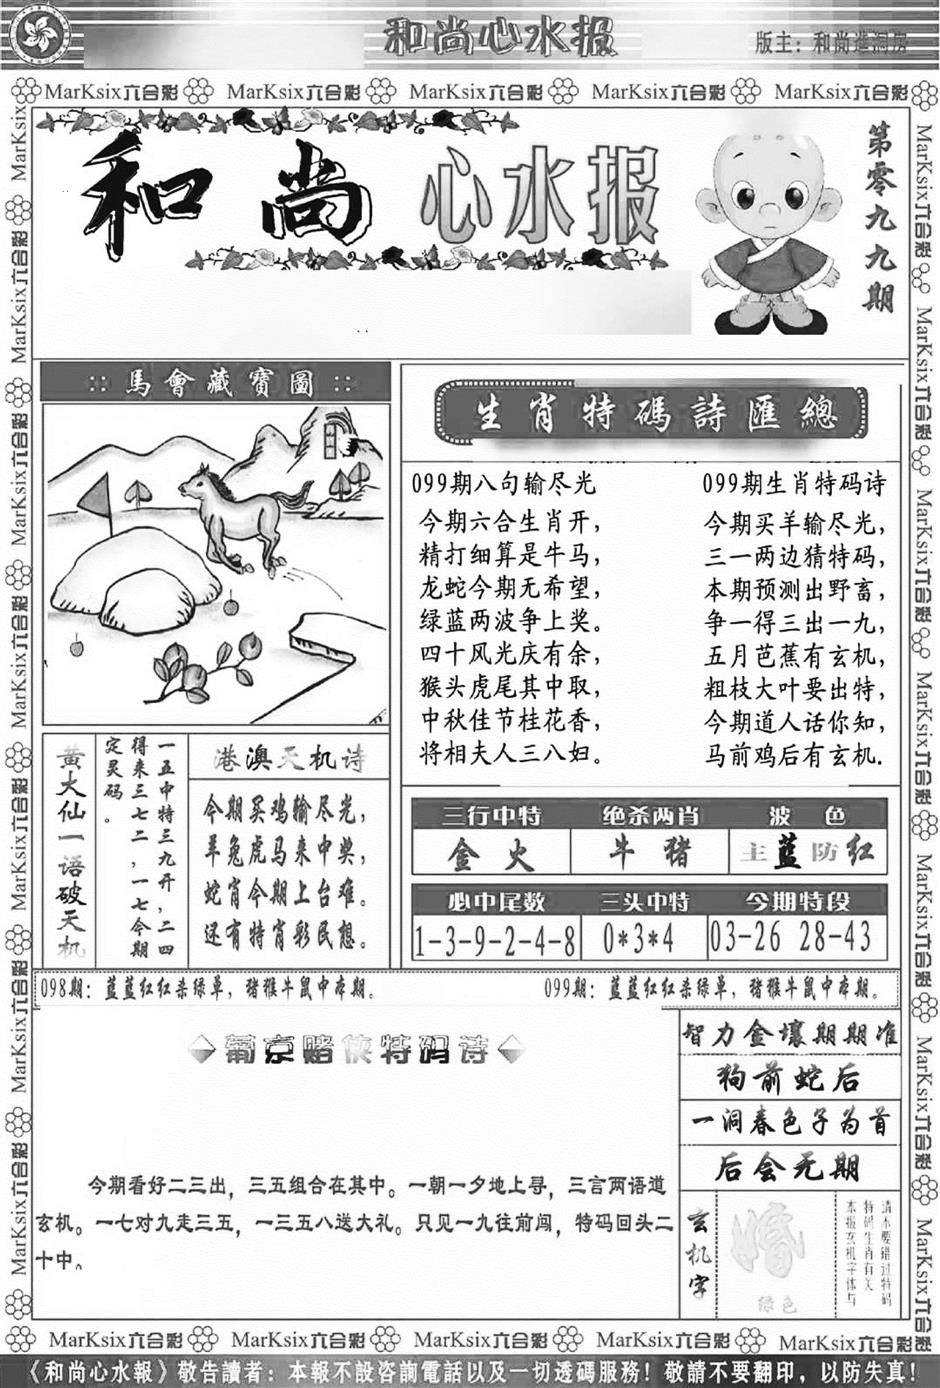 和尚心水报
版主：和尚造洞房
MarKsix六合彩 MarKsix六合彩 MarKsix六合彩 MarKsix六合彩 MarKsix六合彩
和尚心水报
第零九九期
::馬會藏寶圖::
生肖特碼詩匯總
099期八句输尽光
今期六合生肖开，
精打细算是牛马，
龙蛇今期无希望，
绿蓝两波争上奖。
四十风光庆有余，
猴头虎尾其中取，
中秋佳节桂花香，
将相夫人三八妇。
099期生肖特码诗
今期买羊输尽光，
三一两边猜特码，
本期预测出野畜，
争一得三出一九，
五月芭蕉有玄机，
粗枝大叶要出特，
今期道人话你知，
马前鸡后有玄机.
黄大仙一语破天机
一五中特三九开，二四
得来三七二，一七今期
定灵码。
港澳天机诗
今期买鸡输尽光，
羊兔虎马来中奖，
蛇肖今期上台难。
还有特肖彩民想。
三行中特 绝杀两肖 波色
金火 牛猪 主蓝防红
必中尾数 三头中特 今期特段
1-3-9-2-4-8 0*3*4 03-26 28-43
098期：蓝蓝红红杀绿单，猪猴牛鼠中本期。
099期：蓝蓝红红杀绿单，猪猴牛鼠中本期。
◆葡京赌侠特码诗◆
今期看好二三出，三五组合在其中。一朝一夕地上寻，三言两语道
玄机。一七对九走三五，一三五八送大礼。只见一九往前闯，特码回头二
十中。
智力金壤期期准
狗前蛇后
一洞春色子为首
后会无期
玄机字
绿色
请不要错过特码
特码生肖有关
本报玄机字体与
MarKsix六合彩 MarKsix六合彩 MarKsix六合彩 MarKsix六合彩 MarKsix六合彩
《和尚心水報》敬告讀者：本報不設咨詢電話以及一切透碼服務！敬請不要翻印，以防失真！